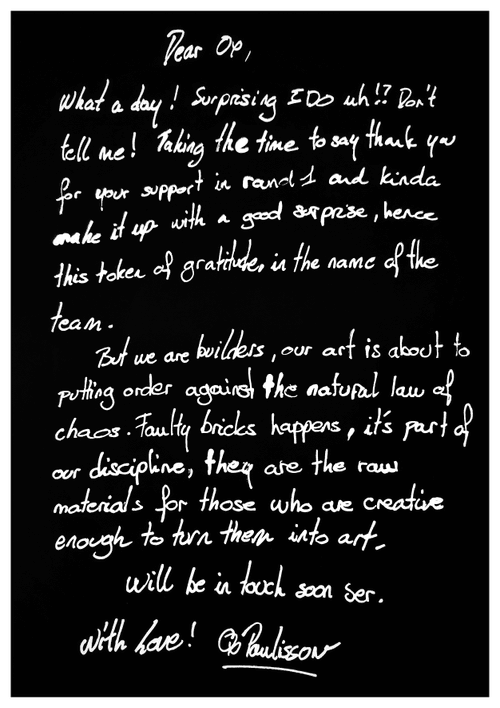 Dear Op,
What a day! Surprising IDO uh!? Don't
tell me! Taking the time to say thank you
for your support in round 1 and kinda
make it up with a good surprise, hence
this token of gratitude, in the name of the
team.
But we are builders, our art is about to
putting order against the natural law of
chaos. Faulty bricks happens, it's part of
our discipline, they are the raw
materials for those who are creative
enough to turn them into art.
will be in touch soon Ser.
with Love! Paulisson